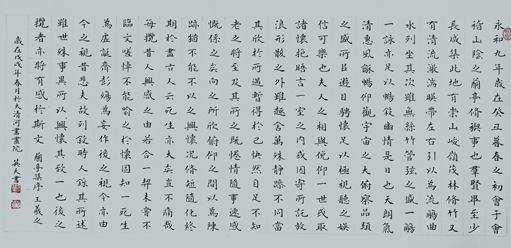 永和九年歲在癸丑暮春之初會于會
稽山陰之蘭亭脩禊事也羣賢畢至少
長咸集此地有崇山峻領茂林脩竹又
有清流激湍暎帶左右引以為流觴曲
水列坐其次雖無絲竹管弦之盛一觴
一詠亦足以暢敘幽情是日也天朗氣
清惠風龢暢仰觀宇宙之大俯察品類
之盛所以遊目騁懷足以極視聽之娛
信可樂也夫人之相與俯仰一世或取
諸懷抱晤言一室之內或因寄所託放
浪形骸之外雖趣舍萬殊靜躁不同當
其欣於所遇暫得於己快然自足不知
老之將至及其所之既惓情隨事遷感
慨係之矣向之所欣俯仰之間以為陳
跡猶不能不以之興懷況脩短隨化終
期於盡古人云死生亦大矣豈不痛哉
每攬昔人興感之由若合一契未嘗不
臨文嗟悼不能喻之於懷固知一死生
為虛誕齊彭殤為妄作後之視今亦由
今之視昔悲夫故列敘時人錄其所述
雖世殊事異所以興懷其致一也後之
攬者亦將有感於斯文 蘭亭集序 王羲之
歲在戊戌年春月於天清河畫書院 英夫書